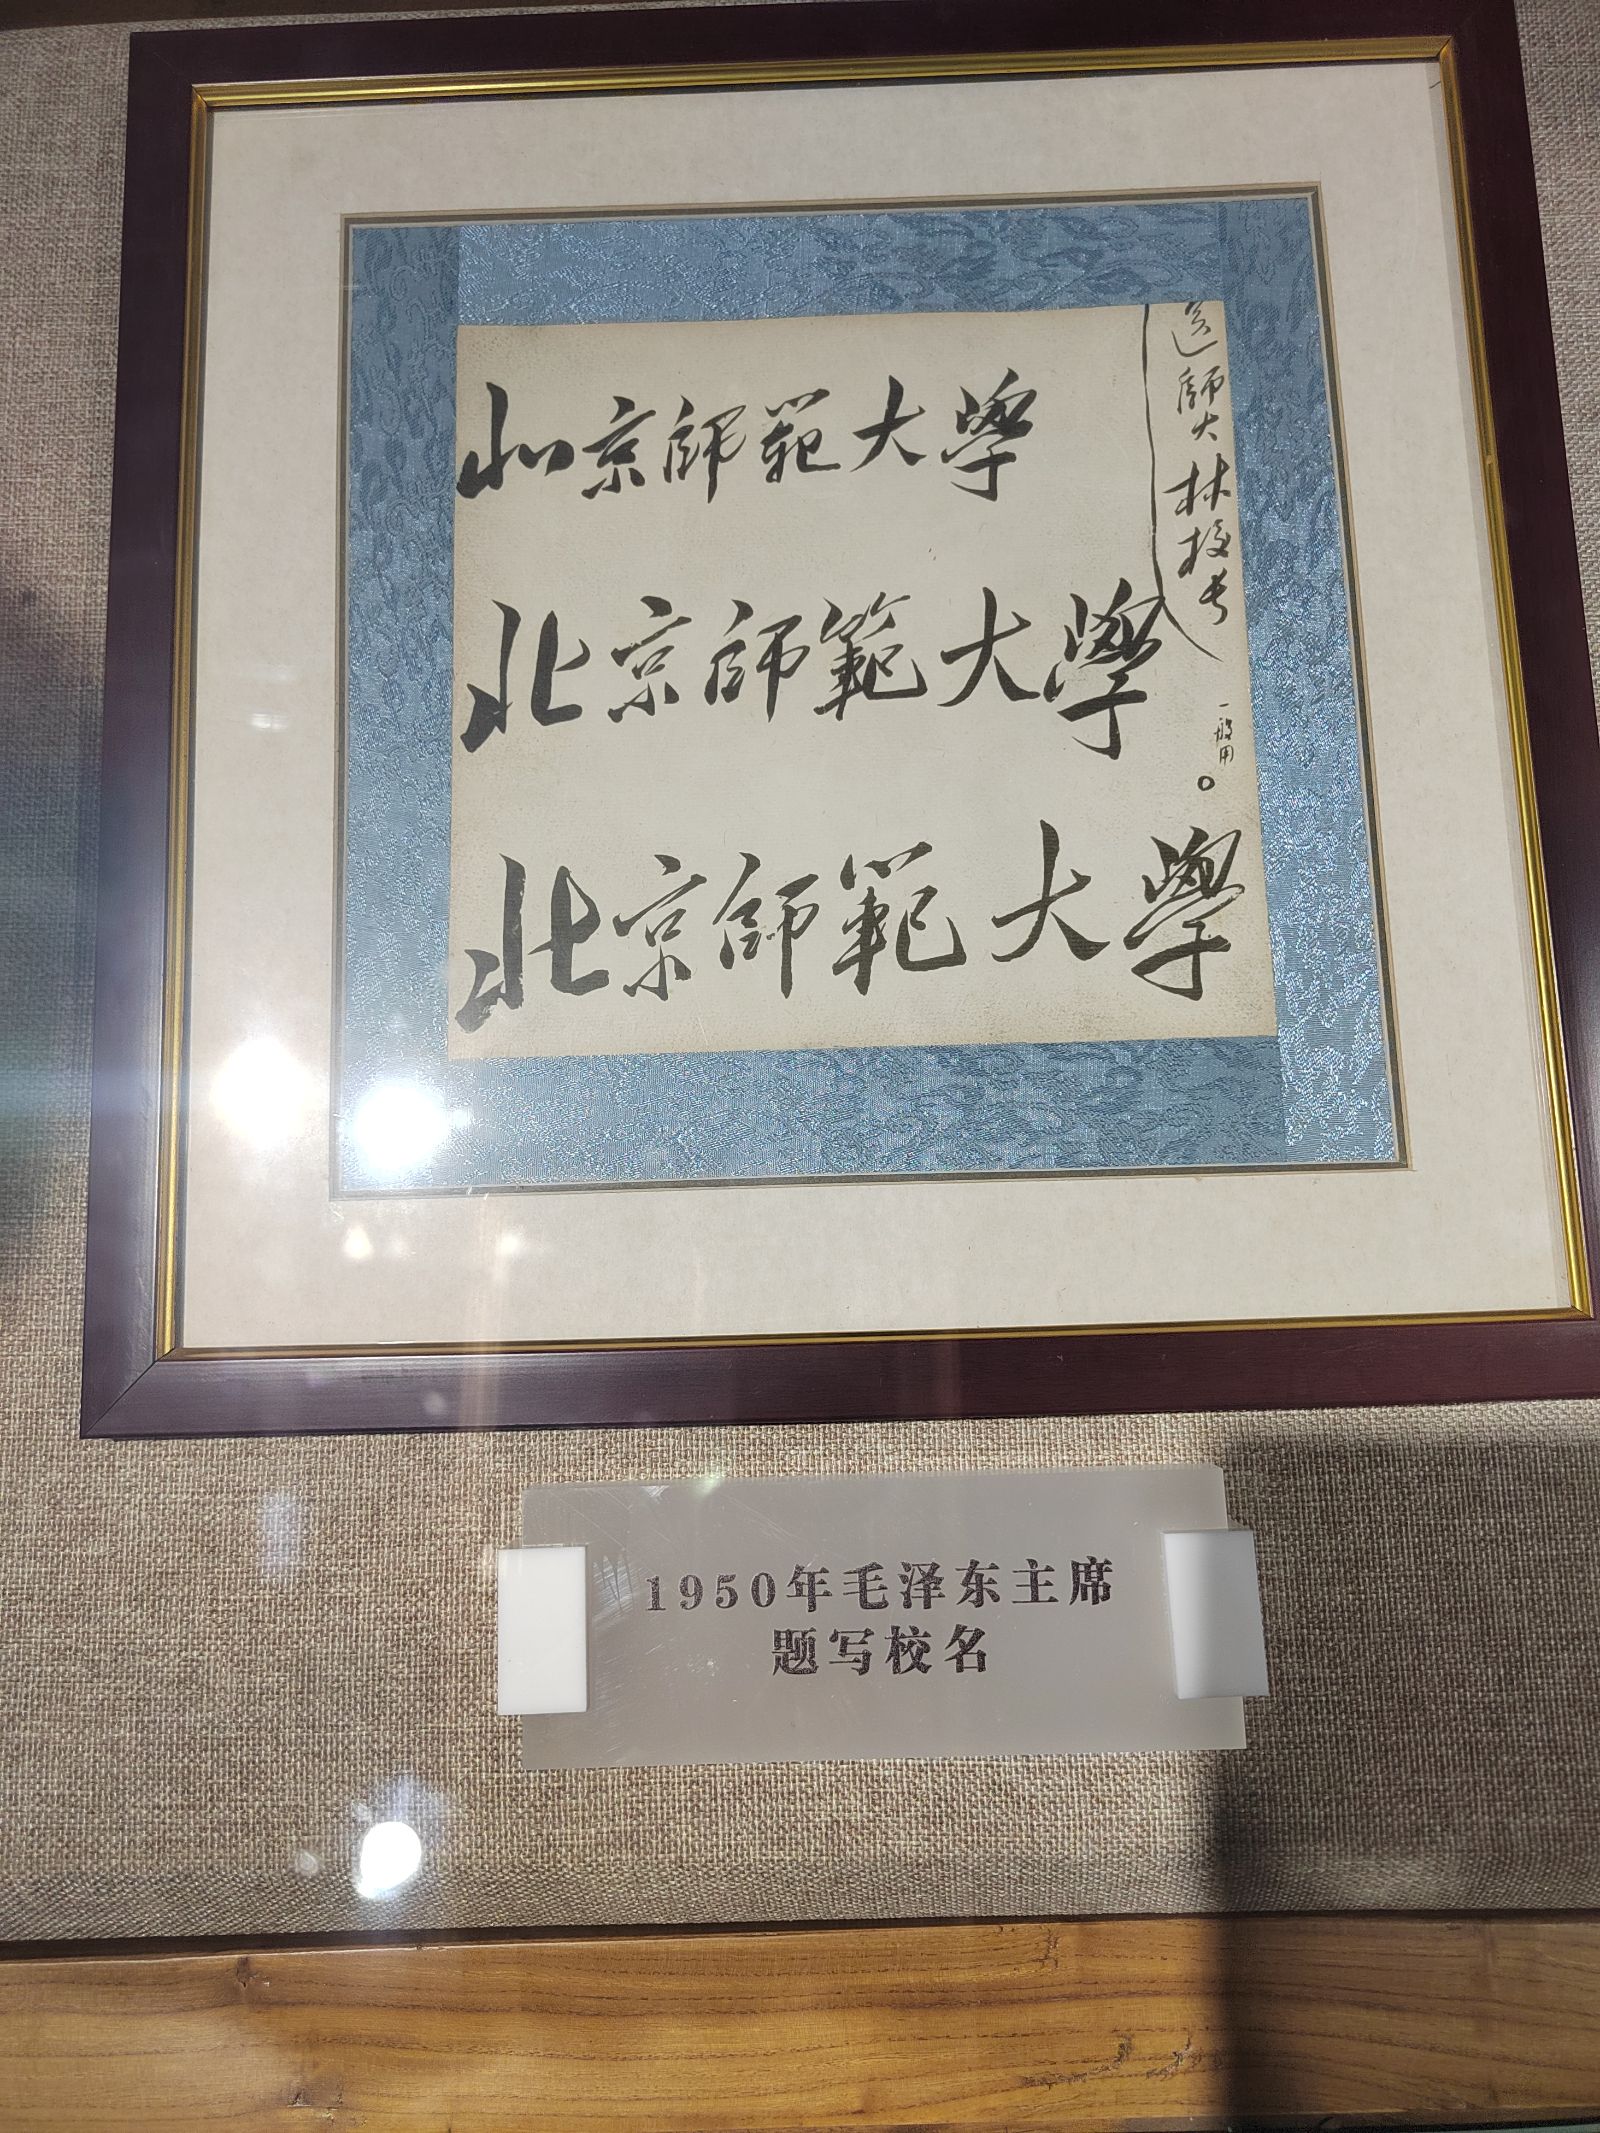 北京師範大學
北京師範大學
北京師範大學
送師大林校长
一般用。
1950年毛泽东主席
题写校名